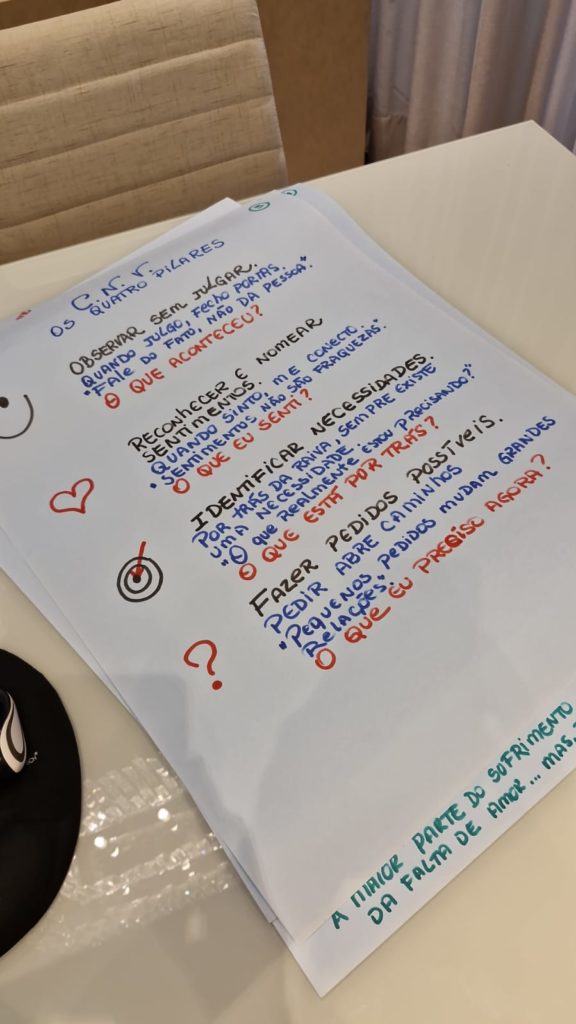 C.N.V.
OS QUATRO PILARES
OBSERVAR SEM JULGAR.
QUANDO JULGO, FECHO PORTAS.
"FALE DO FATO, NÃO DA PESSOA".
O QUE ACONTECEU?
RECONHECER E NOMEAR
SENTIMENTOS.
QUANDO SINTO, ME CONECTO.
"SENTIMENTOS NÃO SÃO FRAQUEZAS."
O QUE EU SENTI?
IDENTIFICAR NECESSIDADES.
POR TRÁS DA RAIVA, SEMPRE EXISTE
UMA NECESSIDADE.
"O que REALMENTE ESTOU PRECISANDO?"
O QUE ESTÁ POR TRÁS?
FAZER PEDIDOS POSSÍVEIS.
PEDIR ABRE CAMINHOS
"PEQUENOS PEDIDOS MUDAM GRANDES
RELAÇÕES"
O QUE EU PRECISO AGORA?
?
A MAIOR PARTE DO SOFRIMENTO
DA FALTA DE AMOR... MAS,